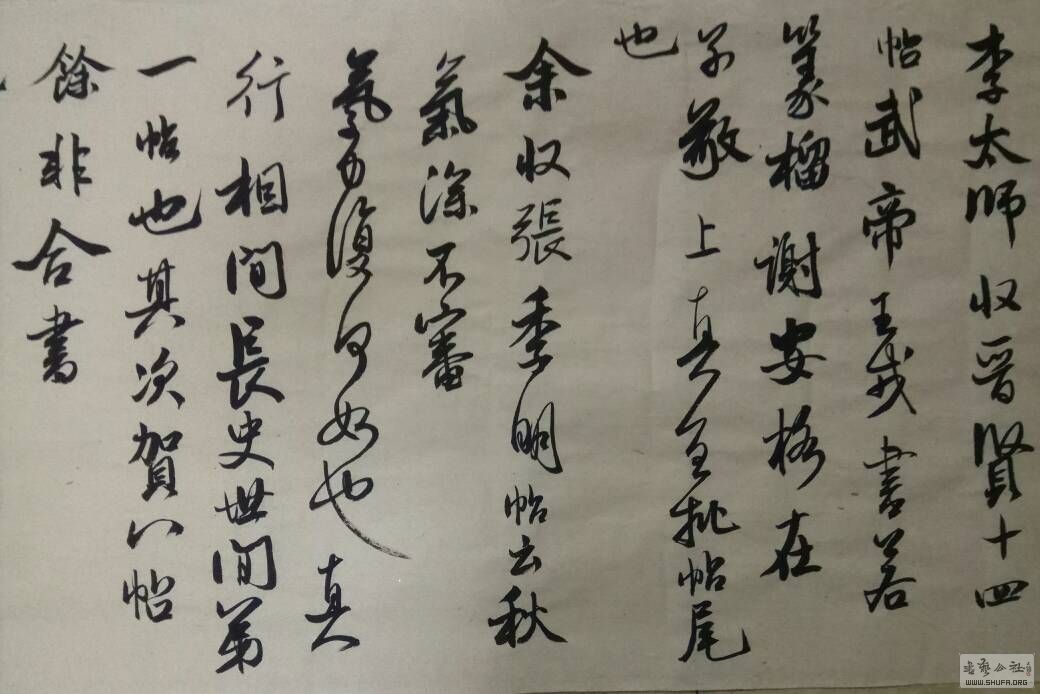 李太師収晉賢十四
帖武帝王戎書若
篆榴謝安格在
子敬上真宜批帖尾
也
余収張季明帖云秋
氣深不審
氣力復何如也真
行相間長史世間第
一帖也其次賀八帖
餘非合書
书艺公社
WWW.SHUFA.ORG